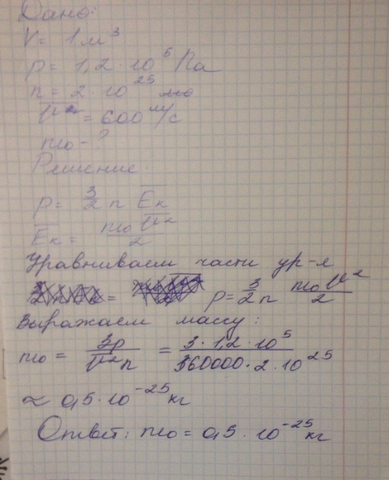 Дано:
V = 1 м³
p = 1,2 · 10⁵ Па
n = 2 · 10²⁵
v² = 600 м/с
m₀ - ?
Решение
p = 3/2 n Eк
Eк = m₀v²/2
Уравниваем части ур-я
p = 3/2 n m₀v²/2
Выражаем массу:
m₀ = 3p/v²n = 3 · 1,2 · 10⁵/360000 · 2 · 10²⁵
≈ 0,5 · 10⁻²⁵ кг
Ответ: m₀ = 0,5 · 10⁻²⁵ кг